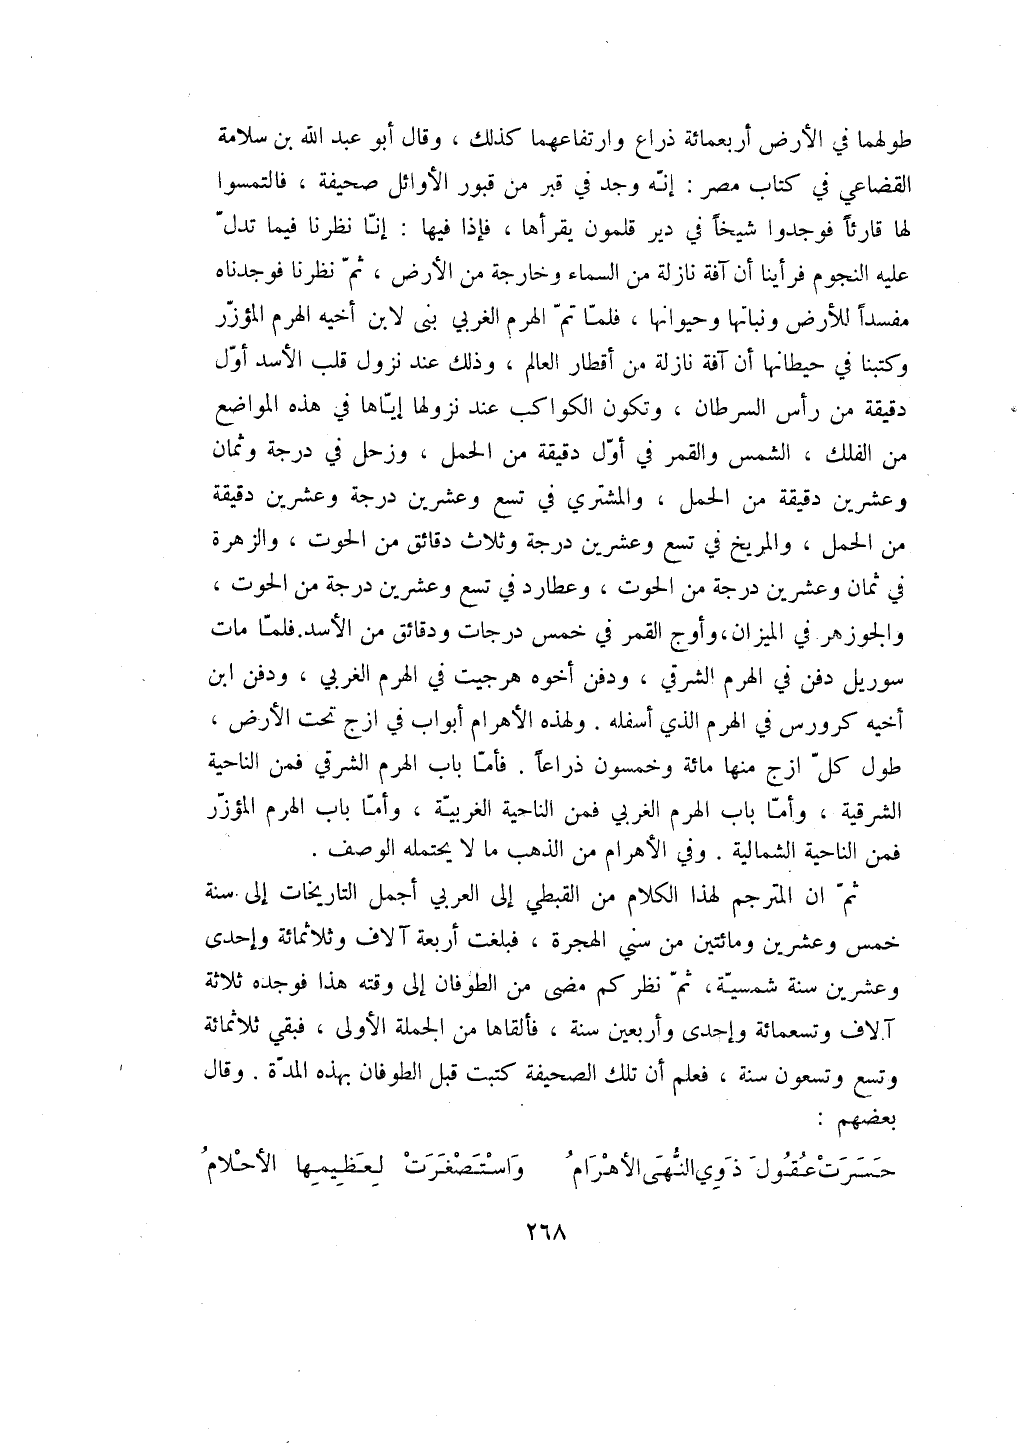 طولهما في الأرض أربعمائة ذراع وارتفاعهما كذلك ، وقال أبو عبد الله بن سلامة
القضاعي في كتاب مصر : إنّه وجد في قبر من قبور الأوائل صحيفة ، فالتمسوا
لها قارئاً فوجدوا شيخاً في دير قلمون يقرأها ، فإذا فيها : إنّا نظرنا فيما تدلّ
عليه النجوم فرأينا أن آفة نازلة من السماء وخارجة من الأرض ، ثمّ نظرنا فوجدناه
مفسداً للأرض ونباتها وحيوانها ، فلمّا تمّ الهرم الغربي بنى لابن أخيه الهرم المؤزّر
وكتبنا في حيطانها أن آفة نازلة من أقطار العالم ، وذلك عند نزول قلب الأسد أوّل
دقيقة من رأس السرطان ، وتكون الكواكب عند نزولها إيّاها في هذه المواضع
من الفلك ، الشمس والقمر في أوّل دقيقة من الحمل ، وزحل في درجة وثمان
وعشرين دقيقة من الحمل ، والمشتري في تسع وعشرين درجة وعشرين دقيقة
من الحمل ، والمريخ في تسع وعشرين درجة وثلاث دقائق من الحوت ، والزهرة
في ثمان وعشرين درجة من الحوت ، وعطارد في تسع وعشرين درجة من الحوت ،
والجوزهر في الميزان، وأوج القمر في خمس درجات ودقائق من الأسد. فلمّا مات
سوريل دفن في الهرم الشرقي ، ودفن أخوه هرجيت في الهرم الغربي ، ودفن ابن
أخيه كرورس في الهرم الذي أسفله . ولهذه الأهرام أبواب في ازج تحت الأرض ،
طول كلّ ازج منها مائة وخمسون ذراعاً . فأمّا باب الهرم الشرقي فمن الناحية
الشرقية ، وأمّا باب الهرم الغربي فمن الناحية الغربيّة ، وأمّا باب الهرم المؤزّر
فمن الناحية الشمالية . وفي الأهرام من الذهب ما لا يحتمله الوصف .
ثمّ ان المترجم لهذا الكلام من القبطي إلى العربي أجمل التاريخات إلى سنة
خمس وعشرين ومائتين من سني الهجرة ، فبلغت أربعة آلاف وثلاثمائة وإحدى
وعشرين سنة شمسيّة، ثمّ نظر كم مضى من الطوفان إلى وقته هذا فوجده ثلاثة
آلاف وتسعمائة وإحدى وأربعين سنة ، فألقاها من الجملة الأولى ، فبقي ثلاثمائة
وتسع وتسعون سنة ، فعلم أن تلك الصحيفة كتبت قبل الطوفان بهذه المدّة . وقال
بعضهم :
حَسَرَتْ عُقُولَ ذَوِي النُّهَى الأهْرَامُ وَاسْتَصْغَرَتْ لِعَظِيمِها الأحْلامُ
٢٦٨